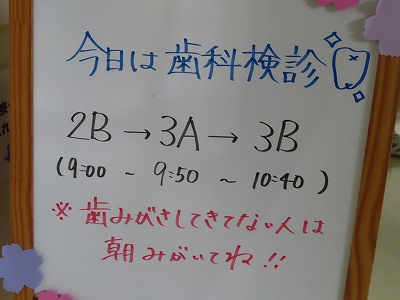 今日は歯科検診
2B→3A→3B
(9:00 ~ 9:50 ~ 10:40)
※歯みがきしてきてない人は
朝みがいてね!!